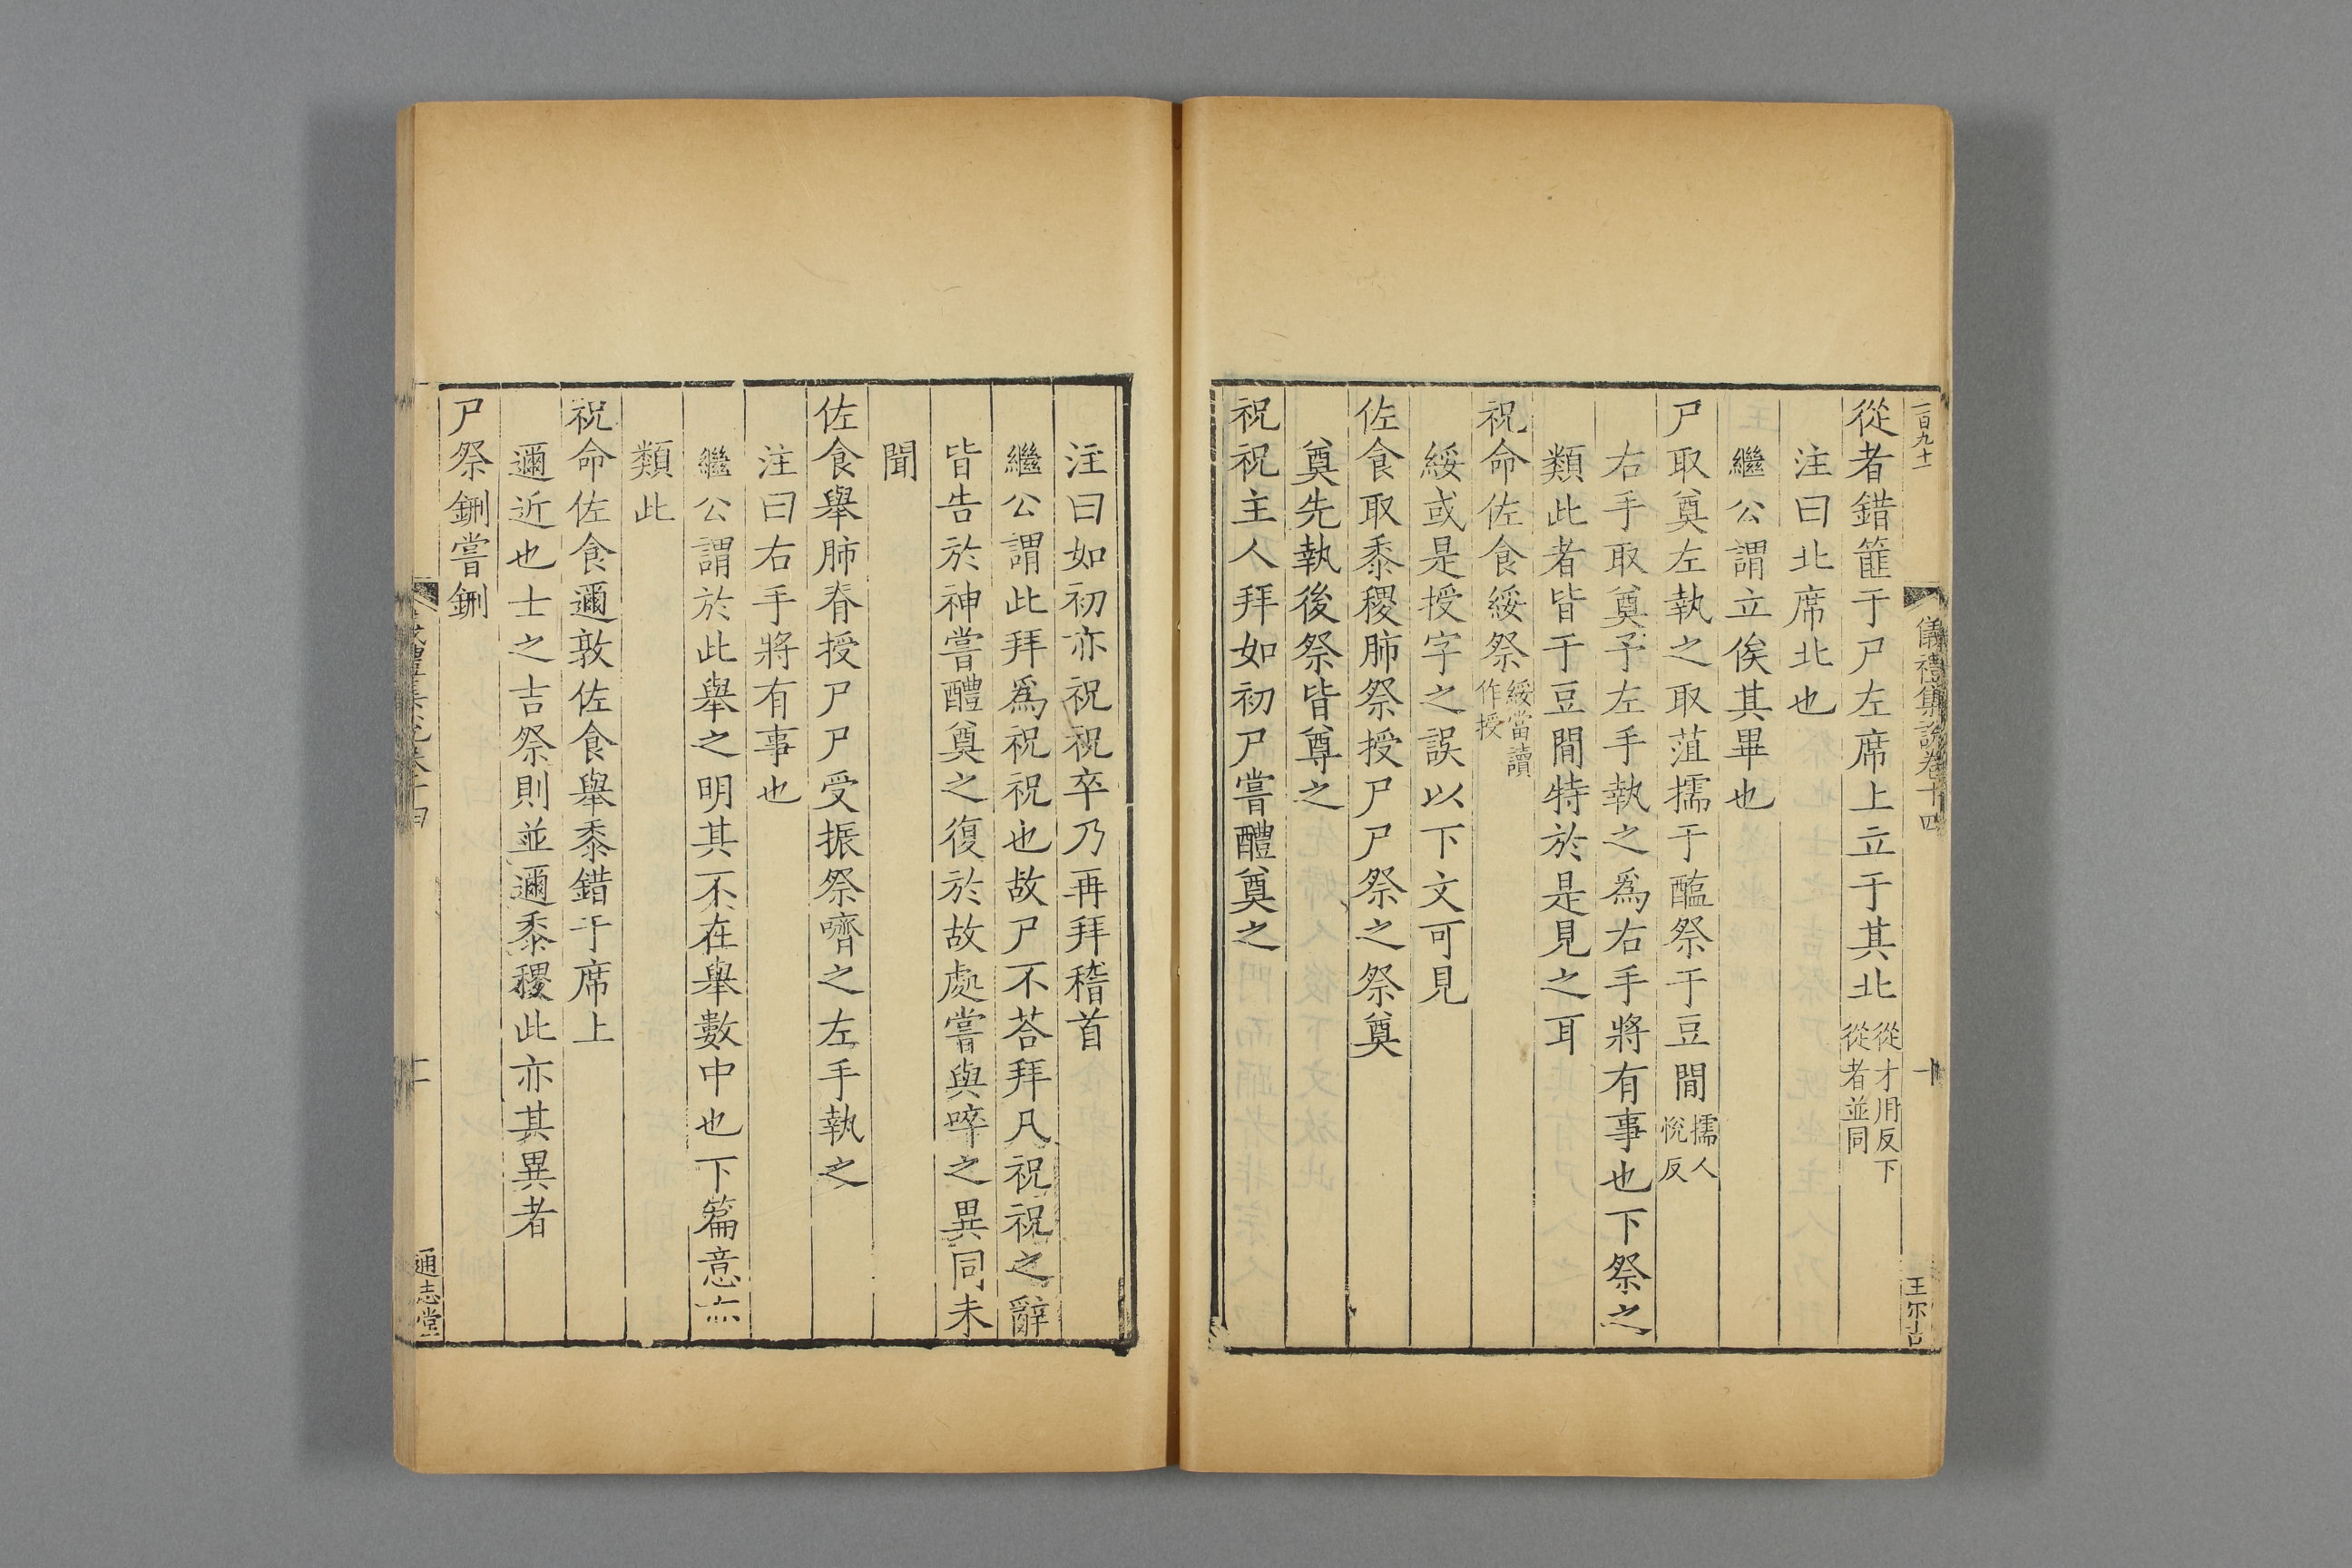 一百九十一
儀禮集説卷十四
十
王尔吉
從者錯篚于尸左席上立于其北 從才用反下從者並同
注曰北席北也
繼公謂立俟其畢也
尸取奠左執之取菹擩于醢祭于豆間 擩人悅反
右手取奠予左手執之爲右手將有事也下祭之
類此者皆于豆間特於是見之耳
祝命佐食綏祭 綏當讀作授
綏或是授字之誤以下文可見
佐食取黍稷肺祭授尸尸祭之祭奠
奠先執後祭皆尊之
祝祝主人拜如初尸嘗醴奠之
注曰如初亦祝祝卒乃再拜稽首
繼公謂此拜爲祝祝也故尸不荅拜凡祝祝之辭
皆告於神嘗醴奠之復於故處嘗與啐之異同未
聞
佐食舉肺脊授尸尸受振祭嚌之左手執之
注曰右手將有事也
繼公謂於此舉之明其不在舉數中也下篇意亦
類此
祝命佐食邇敦佐食舉黍錯于席上
邇近也士之吉祭則並邇黍稷此亦其異者
尸祭鉶嘗鉶
通志堂